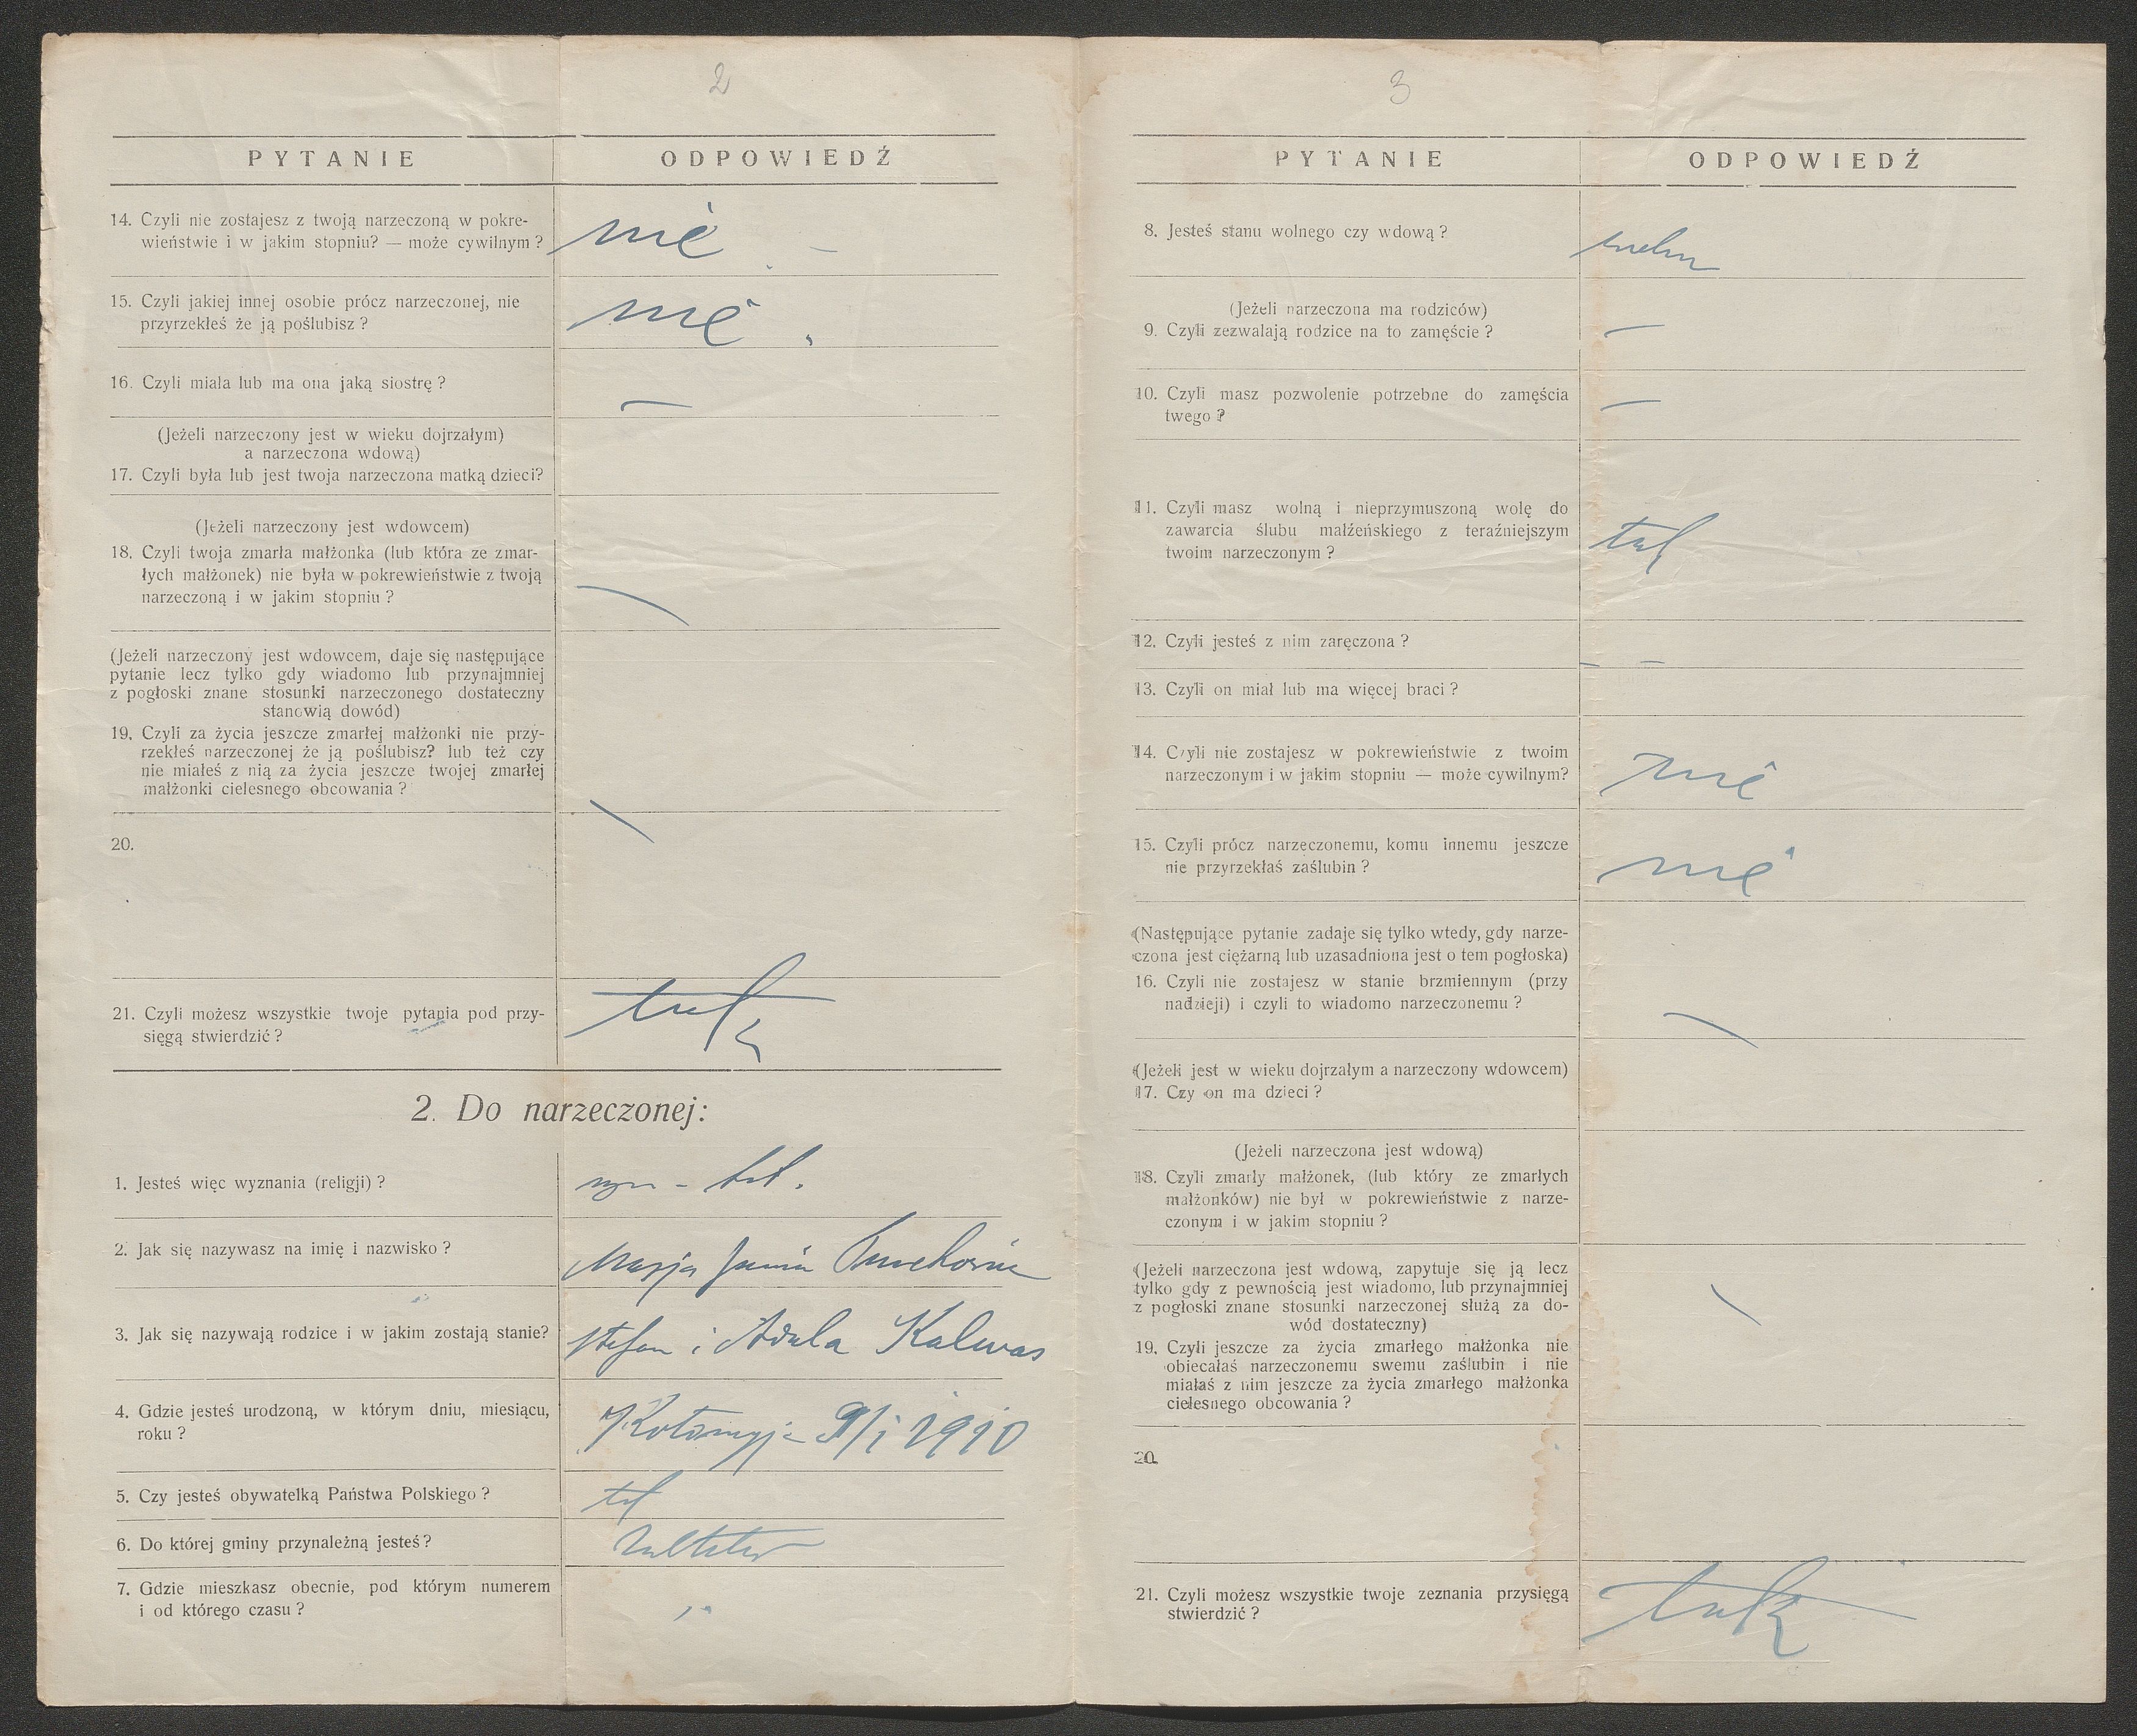 2
PYTANIE ODPOWIEDŹ
14. Czyli nie zostajesz z twoją narzeczoną w pokre-
wieństwie i w jakim stopniu? — może cywilnym? nie —
15. Czyli jakiej innej osobie prócz narzeczonej, nie
przyrzekłeś że ją poślubisz? nie.
16. Czyli miala lub ma ona jaką siostrę? —
(Jeżeli narzeczony jest w wieku dojrzałym)
a narzeczona wdową)
17. Czyli była lub jest twoja narzeczona matką dzieci?
(Jeżeli narzeczony jest wdowcem)
18. Czyli twoja zmarła małżonka (lub która ze zmar-
łych małżonek) nie była w pokrewieństwie z twoją
narzeczoną i w jakim stopniu?
(Jeżeli narzeczony jest wdowcem, daje się następujące
pytanie lecz tylko gdy wiadomo lub przynajmniej
z pogłoski znane stosunki narzeczonego dostateczny
stanowią dowód)
19. Czyli za życia jeszcze zmarłej małżonki nie przy-
rzekłeś narzeczonej że ją poślubisz? lub też czy
nie miałeś z nią za życia jeszcze twojej zmarłej
małżonki cielesnego obcowania?
20.
21. Czyli możesz wszystkie twoje pytania pod przy-
sięgą stwierdzić? tak
2. Do narzeczonej:
1. Jesteś więc wyznania (religji)?
2. Jak się nazywasz na imię i nazwisko? Marja Janina
3. Jak się nazywają rodzice i w jakim zostają stanie? Stefan i Adela Kalwas
4. Gdzie jesteś urodzoną, w którym dniu, miesiącu,
roku? Kołomyja 9/1 1910
5. Czy jesteś obywatelką Państwa Polskiego? tak
6. Do której gminy przynależną jesteś?
7. Gdzie mieszkasz obecnie, pod którym numerem
i od którego czasu?
3
PYTANIE ODPOWIEDŹ
8. Jesteś stanu wolnego czy wdową?
(Jeżeli narzeczona ma rodziców)
9. Czyli zezwalają rodzice na to zamęście? —
10. Czyli masz pozwolenie potrzebne do zamęścia
twego? —
11. Czyli masz wolną i nieprzymuszoną wolę do
zawarcia ślubu małżeńskiego z teraźniejszym
twoim narzeczonym? tak
12. Czyli jesteś z nim zaręczona? — —
13. Czyli on miał lub ma więcej braci?
14. Czyli nie zostajesz w pokrewieństwie z twoim
narzeczonym i w jakim stopniu — może cywilnym? nie
15. Czyli prócz narzeczonemu, komu innemu jeszcze
nie przyrzekłaś zaślubin? nie
(Następujące pytanie zadaje się tylko wtedy, gdy narze-
czona jest ciężarną lub uzasadniona jest o tem pogłoska)
16. Czyli nie zostajesz w stanie brzmiennym (przy
nadzieji) i czyli to wiadomo narzeczonemu?
(Jeżeli jest w wieku dojrzałym a narzeczony wdowcem)
17. Czy on ma dzieci?
(Jeżeli narzeczona jest wdową)
18. Czyli zmarły małżonek, (lub który ze zmarłych
małżonków) nie był w pokrewieństwie z narze-
czonym i w jakim stopniu?
(Jeżeli narzeczona jest wdową, zapytuje się ją lecz
tylko gdy z pewnością jest wiadomo, lub przynajmniej
z pogłoski znane stosunki narzeczonej służą za do-
wód dostateczny)
19. Czyli jeszcze za życia zmarłego małżonka nie
obiecałaś narzeczonemu swemu zaślubin i nie
miałaś z nim jeszcze za życia zmarłego małżonka
cielesnego obcowania?
20.
21. Czyli możesz wszystkie twoje zeznania przysięgą
stwierdzić? tak